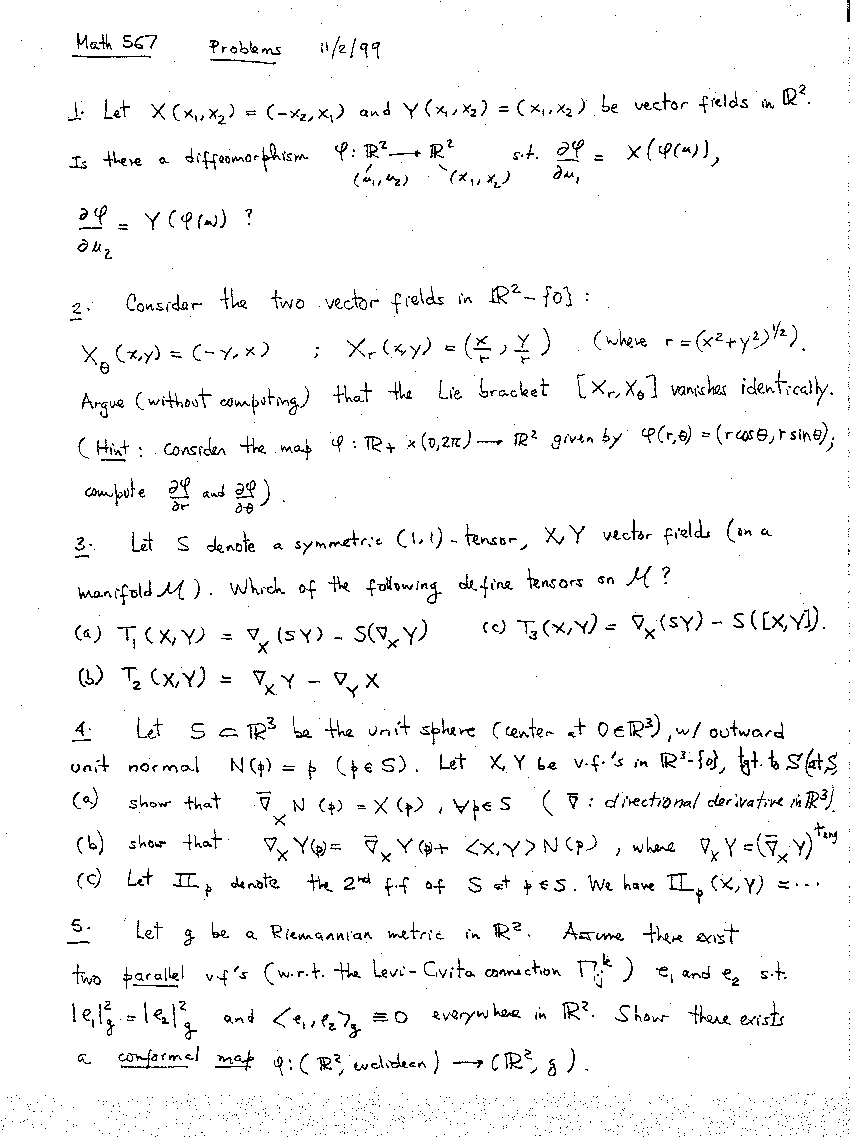 Math 567 Problems 11/2/99
1. Let X(x₁,x₂) = (-x₂,x₁) and Y(x₁,x₂) = (x₁,x₂) be vector fields in ℝ².
Is there a diffeomorphism φ: ℝ² → ℝ² s.t. ∂φ/∂u₁ = X(φ(u)),
(u₁,u₂) (x₁,x₂)
∂φ/∂u₂ = Y(φ(u)) ?
2. Consider the two vector fields in ℝ²-{0} :
X_θ(x,y) = (-y,x) ; X_r(x,y) = (x/r, y/r) (where r = (x²+y²)^{1/2}).
Argue (without computing) that the Lie bracket [X_r, X_θ] vanishes identically.
(Hint: consider the map φ: ℝ₊ × (0,2π) → ℝ² given by φ(r,θ) = (r cosθ, r sinθ);
compute ∂φ/∂r and ∂φ/∂θ).
3. Let S denote a symmetric (1,1)-tensor, X,Y vector fields (on a
manifold M). Which of the following define tensors on M?
(a) T₁(X,Y) = ∇_X(SY) - S(∇_X Y) (c) T₃(X,Y) = ∇_X(SY) - S([X,Y]).
(b) T₂(X,Y) = ∇_X Y - ∇_Y X
4. Let S ⊂ ℝ³ be the unit sphere (center at 0∈ℝ³), w/ outward
unit normal N(p) = p (p∈S). Let X,Y be v.f.'s in ℝ³-{0}, tgt. to S (at S
(a) show that ∇̄_X N(p) = X(p), ∀p∈S (∇̄: directional derivative in ℝ³)
(b) show that ∇_X Y(p) = ∇̄_X Y(p) + <X,Y>N(p), where ∇_X Y = (∇̄_X Y)^{tang}
(c) Let II_p denote the 2nd f.f of S at p∈S. We have II_p(X,Y) = ...
5. Let g be a Riemannian metric in ℝ². Assume there exist
two parallel v.f's (w.r.t. the Levi-Civita connection Γ_{ij}^k) e₁ and e₂ s.t.
|e₁|²_g = |e₂|²_g and <e₁,e₂>_g ≡ 0 everywhere in ℝ². Show there exists
a conformal map φ: (ℝ², euclidean) → (ℝ², g).